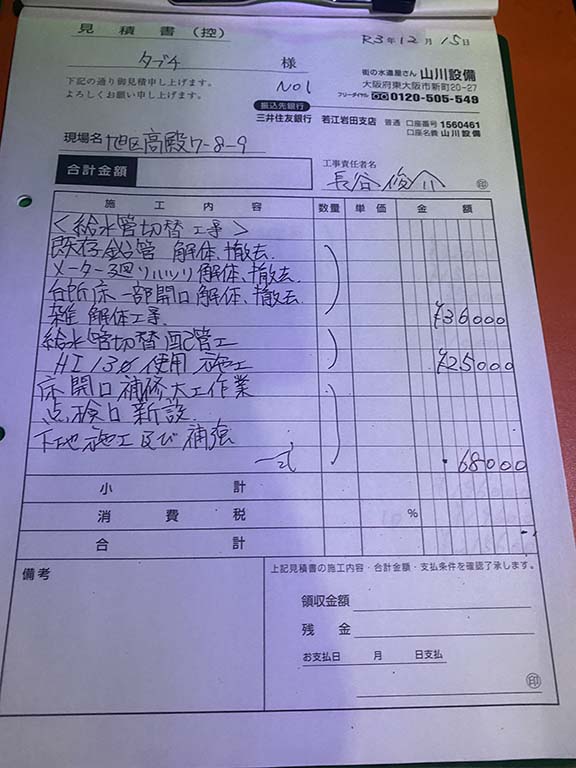 見積書（控）
R3年12月15日
タブチ 様
NO1
下記の通り御見積申し上げます。
よろしくお願い申し上げます。
街の水道屋さん 山川設備
大阪府東大阪市新町20-27
フリーダイヤル 0120-505-549
振込先銀行
三井住友銀行 若江岩田支店 普通 口座番号 1560461
口座名義 山川設備
現場名 旭区高殿7-8-9
合計金額
工事責任者名
長谷俊介 印
施工内容 数量 単価 金額
＜給水管切替工事＞
既存鉛管 解体、撤去
メーター廻りハツリ解体、撤去
台所床一部開口解体、撤去
雑解体工事 ¥36000
給水管切替配管工
HI13φ使用施工 ¥25000
床開口補修大工作業
点検口新設
下地施工及び補強
一式 68000
小計
消費税 %
合計
備考
上記見積書の施工内容・合計金額・支払条件を確認了承します。
領収金額
残金
お支払日 月 日支払
印